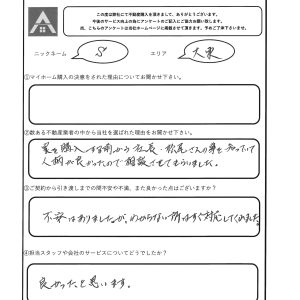 この度は弊社にて不動産購入を頂きまして、ありがとうございます。
今後のサービス向上の為にアンケートのご記入にご協力お願い致します。
尚、こちらのアンケートは当社ホームページに掲載させて頂きます。予めご了承下さいませ。
ニックネーム S エリア 大東
①マイホーム購入の決意をされた理由についてお聞かせ下さい。
②数ある不動産業者の中から当社を選ばれた理由をお聞かせ下さい。
家を購入する前から社長・松尾さんの事を知っていて
人柄が良かったので相談させてもらいました。
③ご契約から引き渡しまでの間不安や不満、また良かった点はございますか？
不安はありましたが、わからない所はすぐ対応してくれました。
④担当スタッフや会社のサービスについてどうでしたか？
良かったと思います。